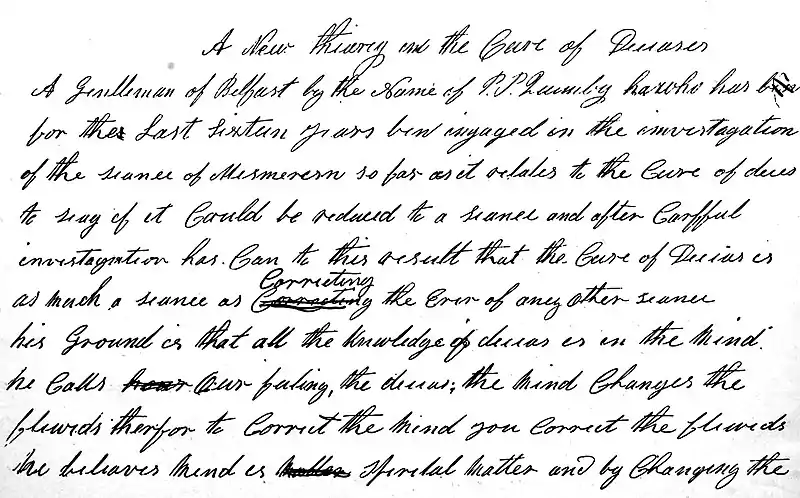 A New thiorey in the Cure of Diseases
A Gentleman of Belfast by the Name of P. P. Quimby who has
for the Last Sixteen years ben ingaged in the invistagation
of the sianec of Mismerism so far as it relates to the Cure of diseas
to see if it Could be reduced to a sianec and after Carfful
invistagation has Can to this result that the Cure of Diseias is
as much a sianec as Correcting Correcting the Error of aney other sianec
his Ground is that all the Knowledge of diseas is in the Mind.
he Calls Our feiling, the diseas; the Mind Changes the
fluwids therfor to Correct the Mind you Correct the fluwids
he beliaves Mind is Matter Spirital Matter and by Changing the